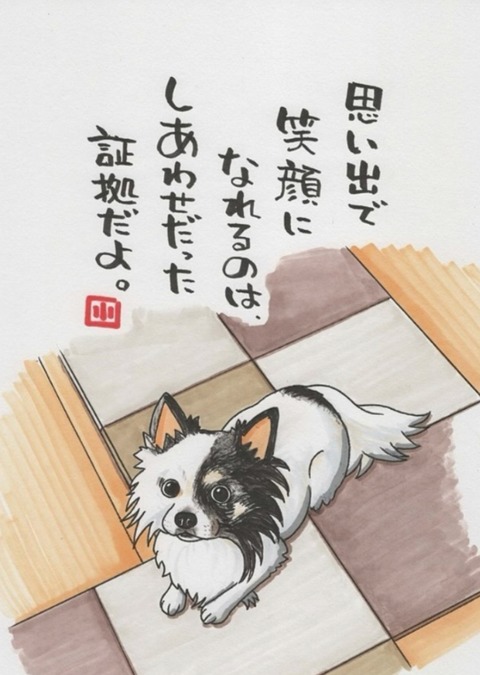 思い出で
笑顔に
なれるのは、
しあわせだった
証拠だよ。